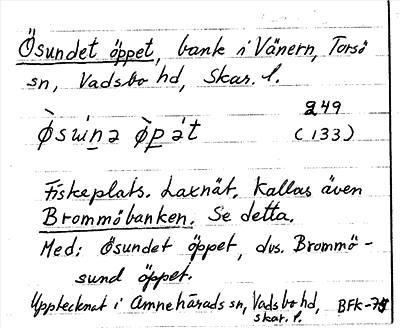 Ösundet öppet, bank i Vänern, Torsö
sn, Vadsbo hd, Skar. l.
249
(133)
Fiskeplats. Laxnät. Kallas även
Brommöbanken. Se detta.
Med: Ösundet öppet, dvs. Brommö-
sund öppet.
Upptecknat i Amnehärads sn, Vadsbo hd,
skar. l.
BFK-75